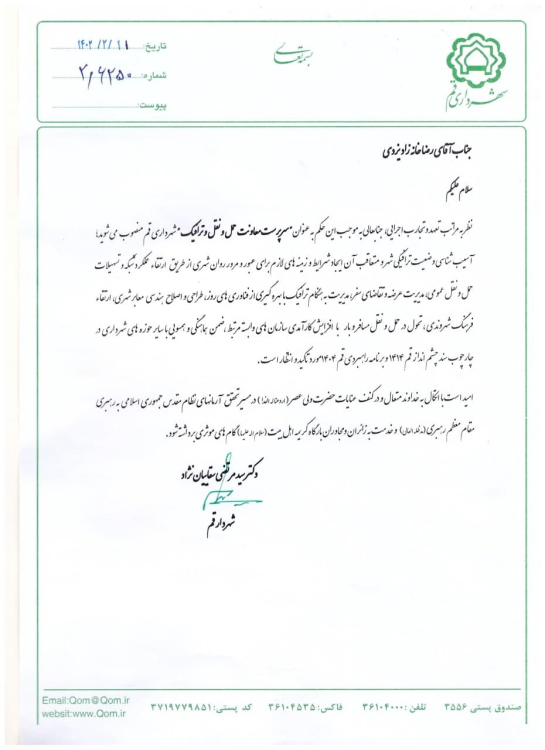 بسمه تعالی
شهرداری قم
تاریخ: ۱۴۰۲/۲/۱۱
شماره: ۲۰۶۲۵۰
پیوست:
جناب آقای رضا خانه زاد یزدی
سلام علیکم
نظر به مراتب تعهد و تجارب اجرایی، جنابعالی به موجب این حکم به عنوان "سرپرست معاونت حمل و نقل و ترافیک" شهرداری قم منصوب می شوید؛
آسیب شناسی وضعیت ترافیکی شهر و متعاقب آن ایجاد شرایط و زمینه های لازم برای عبور و مرور روان شهری از طریق ارتقاء عملکرد شبکه و تسهیلات
حمل و نقل عمومی، مدیریت عرضه و تقاضای سفر، مدیریت به هنگام ترافیک با بهره گیری از فناوری های روز، طراحی و اصلاح هندسی معابر شهری، ارتقاء
فرهنگ شهروندی، تحول در حمل و نقل مسافر و بار با افزایش کارآمدی سازمان های وابسته مرتبط، ضمن هماهنگی و همسویی با سایر حوزه های شهرداری در
چارچوب سند چشم انداز قم ۱۴۱۴ و برنامه راهبردی قم ۱۴۰۴ مورد تاکید و انتظار است.
امید است با اتکال به خداوند متعال و در کنف عنایات حضرت ولی عصر (ارواحنا له الفدا) در مسیر تحقق آرمانهای نظام مقدس جمهوری اسلامی به رهبری
مقام معظم رهبری (مدظله العالی) و خدمت به زائران و مجاوران بارگاه کریمه اهل بیت (سلام الله علیها) گام های موثری برداشته شود.
دکتر سید مرتضی سقاییان نژاد
شهردار قم
صندوق پستی ۳۵۵۶ تلفن: ۳۶۱۰۴۰۰۰ فاکس: ۳۶۱۰۴۵۳۵ کد پستی: ۳۷۱۹۷۷۹۸۵۱
Email:Qom@Qom.ir
websit:www.Qom.ir